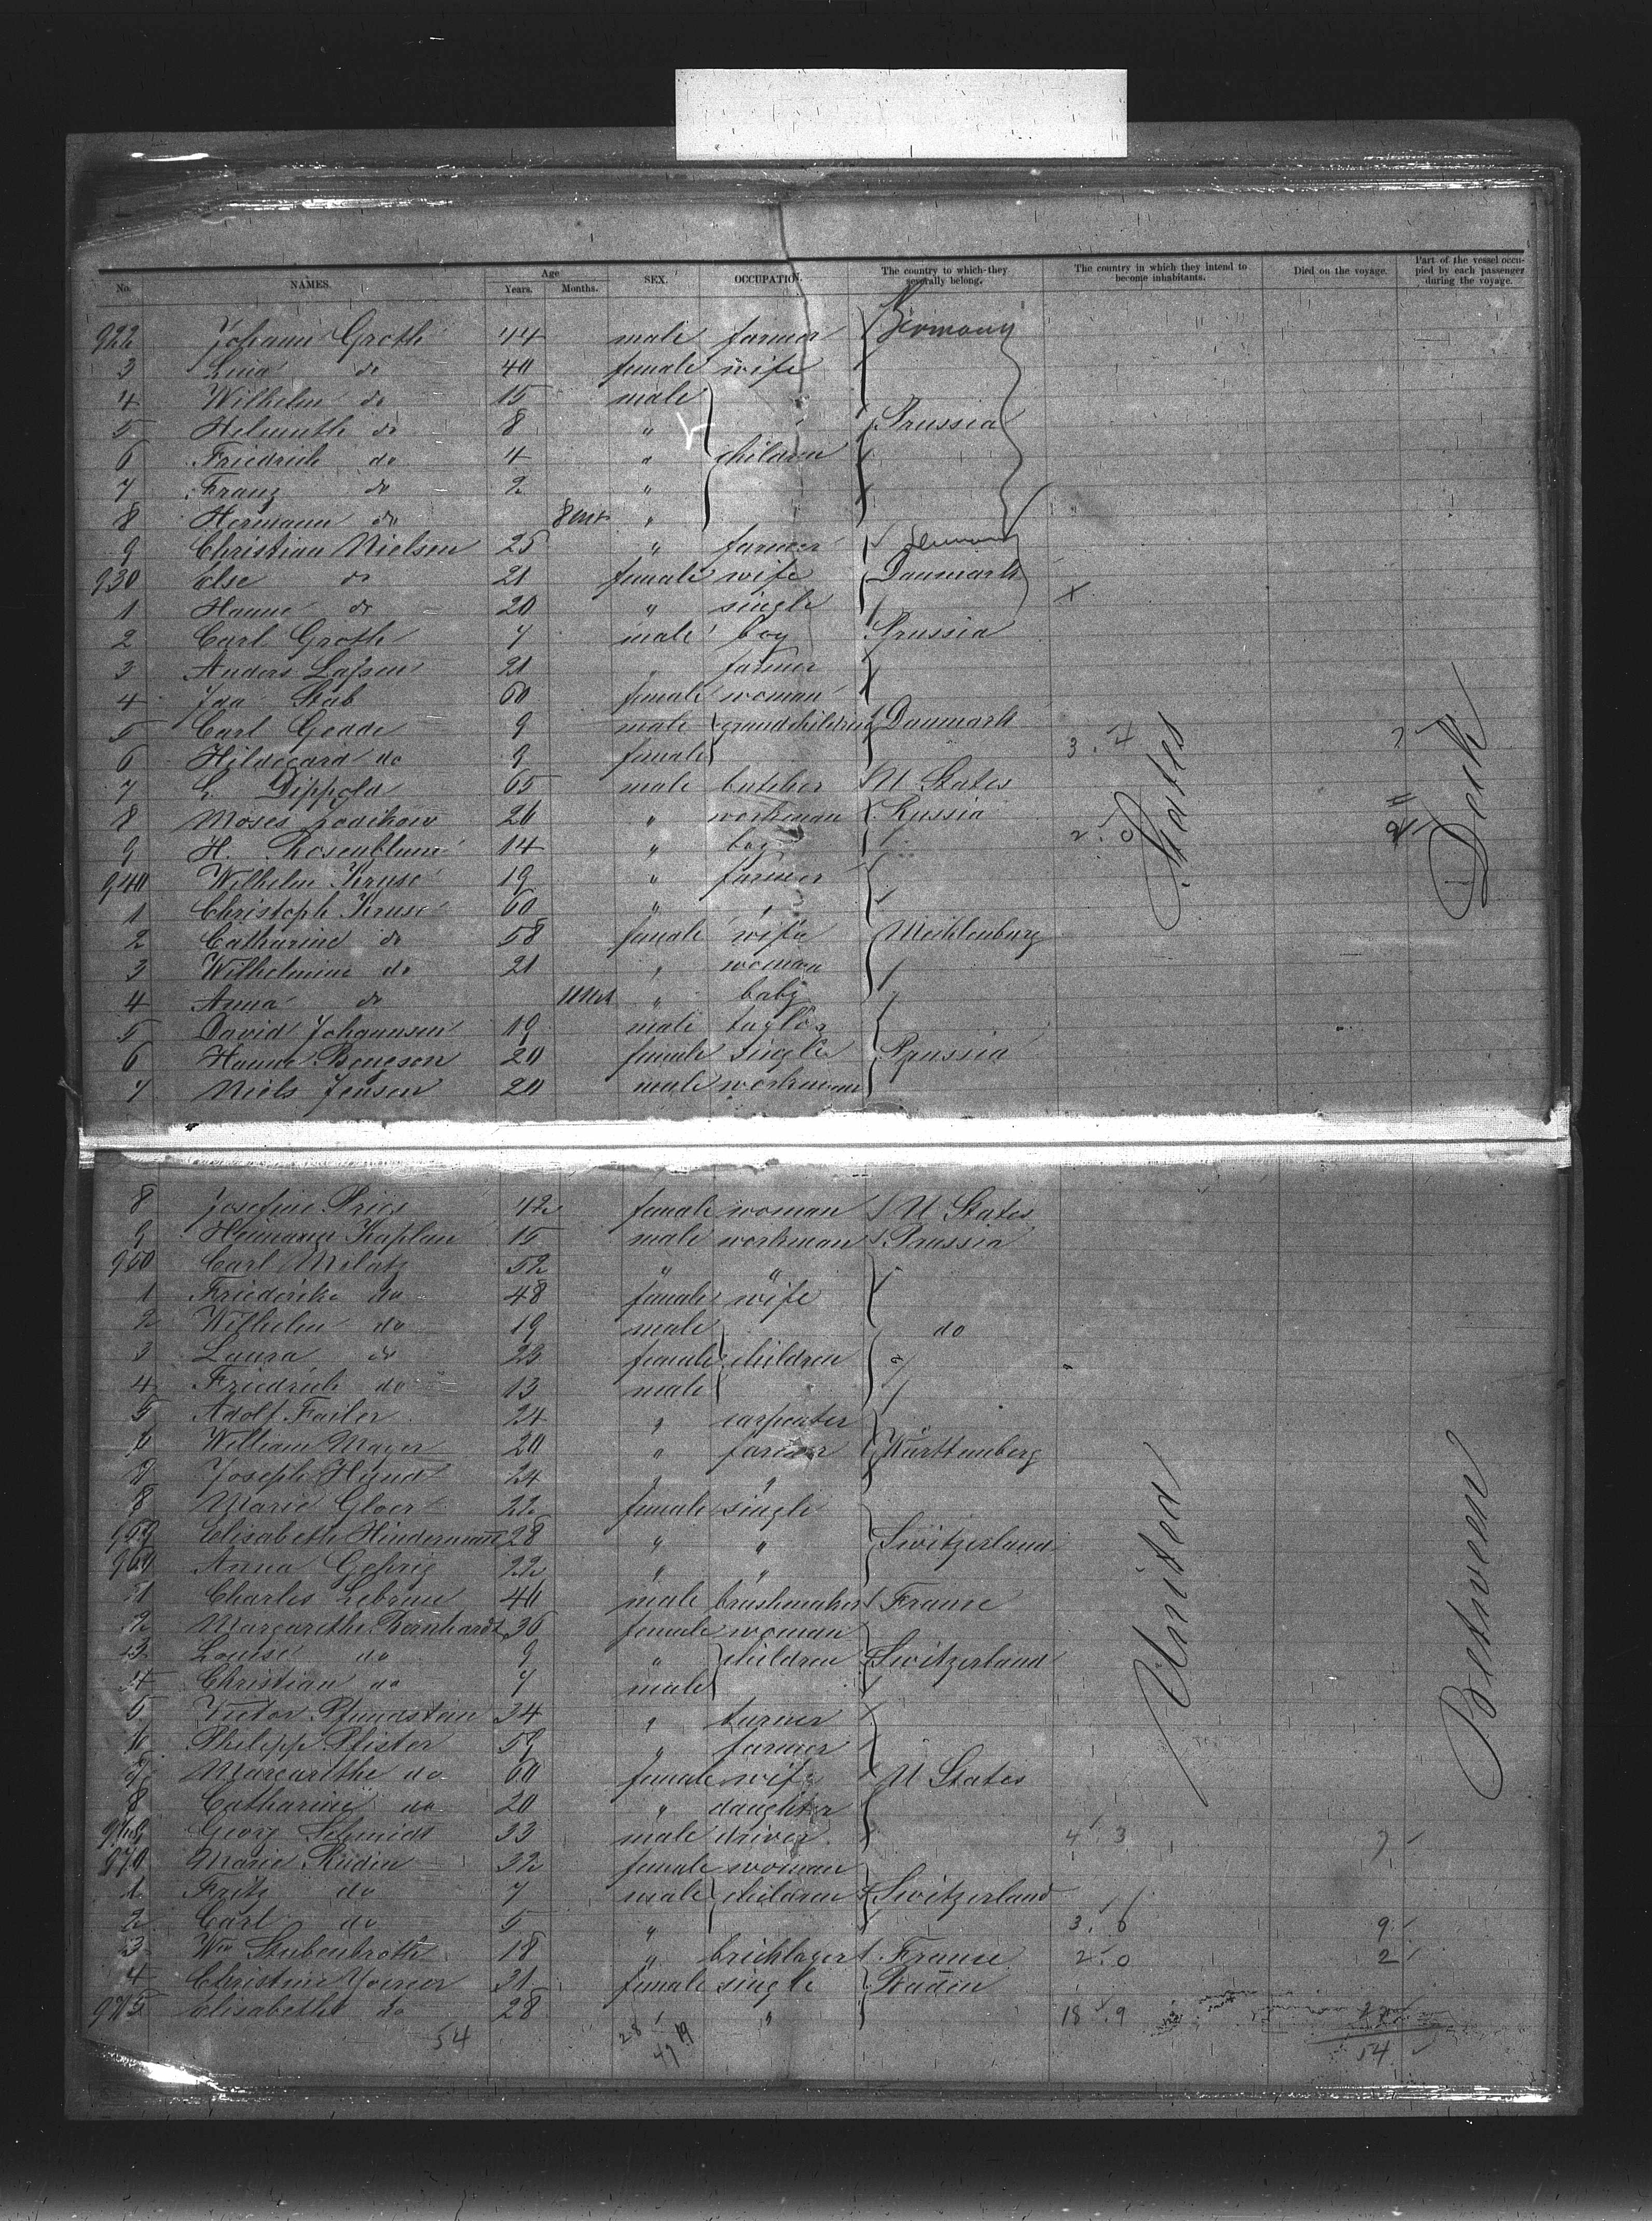 No. NAMES. Age Years. Months. SEX. OCCUPATION. The country to which they severally belong. The country in which they intend to become inhabitants. Died on the voyage. Part of the vessel occupied by each passenger during the voyage.
922 Johann Groth 44 male farmer Germany
3 Lina do 40 female wife
4 Wilhelm do 15 male
5 Helmuth do 8 " Prussia
6 Friedrich do 4 " children
7 Franz do 2 "
8 Hermann do 8 Mt "
9 Christian Nielsen 25 " farmer
930 Else do 21 female wife Danmark
1 Hanne do 20 " single
2 Carl Groth 7 male boy Prussia
3 Anders Lassen 21 " farmer
4 Ida Stab 60 female woman
5 Carl Gedde 9 male grandchildren Danmark
6 Hildegard do 9 female 3. 4
7 L. Dippold 65 male butcher U States
8 Moses 26 " workman Russia
9 H. Rosenblum 14 " boy 2. 0
940 Wilhelm Kruse 19 " farmer
1 Christoph Kruse 60 " "
2 Catharine do 58 female wife Mecklenburg
3 Wilhelmine do 21 " woman
4 Anna do 11 Mt " baby
5 David Johannsen 19 male taylor
6 Hanne Bengson 20 female single Prussia
7 Niels Jensen 20 male workman
8 Josefine Pries 42 female woman U States
9 Heimann Kaplan 15 male workman Prussia
950 Carl Milatz 52 " "
1 Friederike do 48 female wife
2 Wilhelm do 19 male do
3 Laura do 23 female children
4 Friedrich do 13 male
5 Adolf Failer 24 " carpenter
6 William Mayer 20 " farmer Württemberg
7 Joseph Hund 24 " "
8 Marie Gloer 22 female single
959 Elisabeth Hindermann 28 " " Switzerland
960 Anna Gehrig 22 " "
1 Charles Lebrun 40 male brushmaker France
2 Margarethe Bernhardt 36 female woman
3 Louise do 9 " children Switzerland
4 Christian do 7 male
5 Victor Pfundstein 34 " turner
6 Philipp Pfister 59 " farmer
7 Margarethe do 60 female wife U States
8 Catharine do 20 " daughter
969 Georg Schmidt 33 male driver 4. 3 7
970 Marie Rudin 32 female woman
1 Fritz do 7 male children Switzerland
2 Carl do 5 " 3. 6 9
3 Wm Stubenbroth 18 " bricklayer France 2. 0 2
4 Christine 31 female single Baden
975 Elisabeth do 28 " " 18. 9
54 28 19 47 54
United States
Between Deck